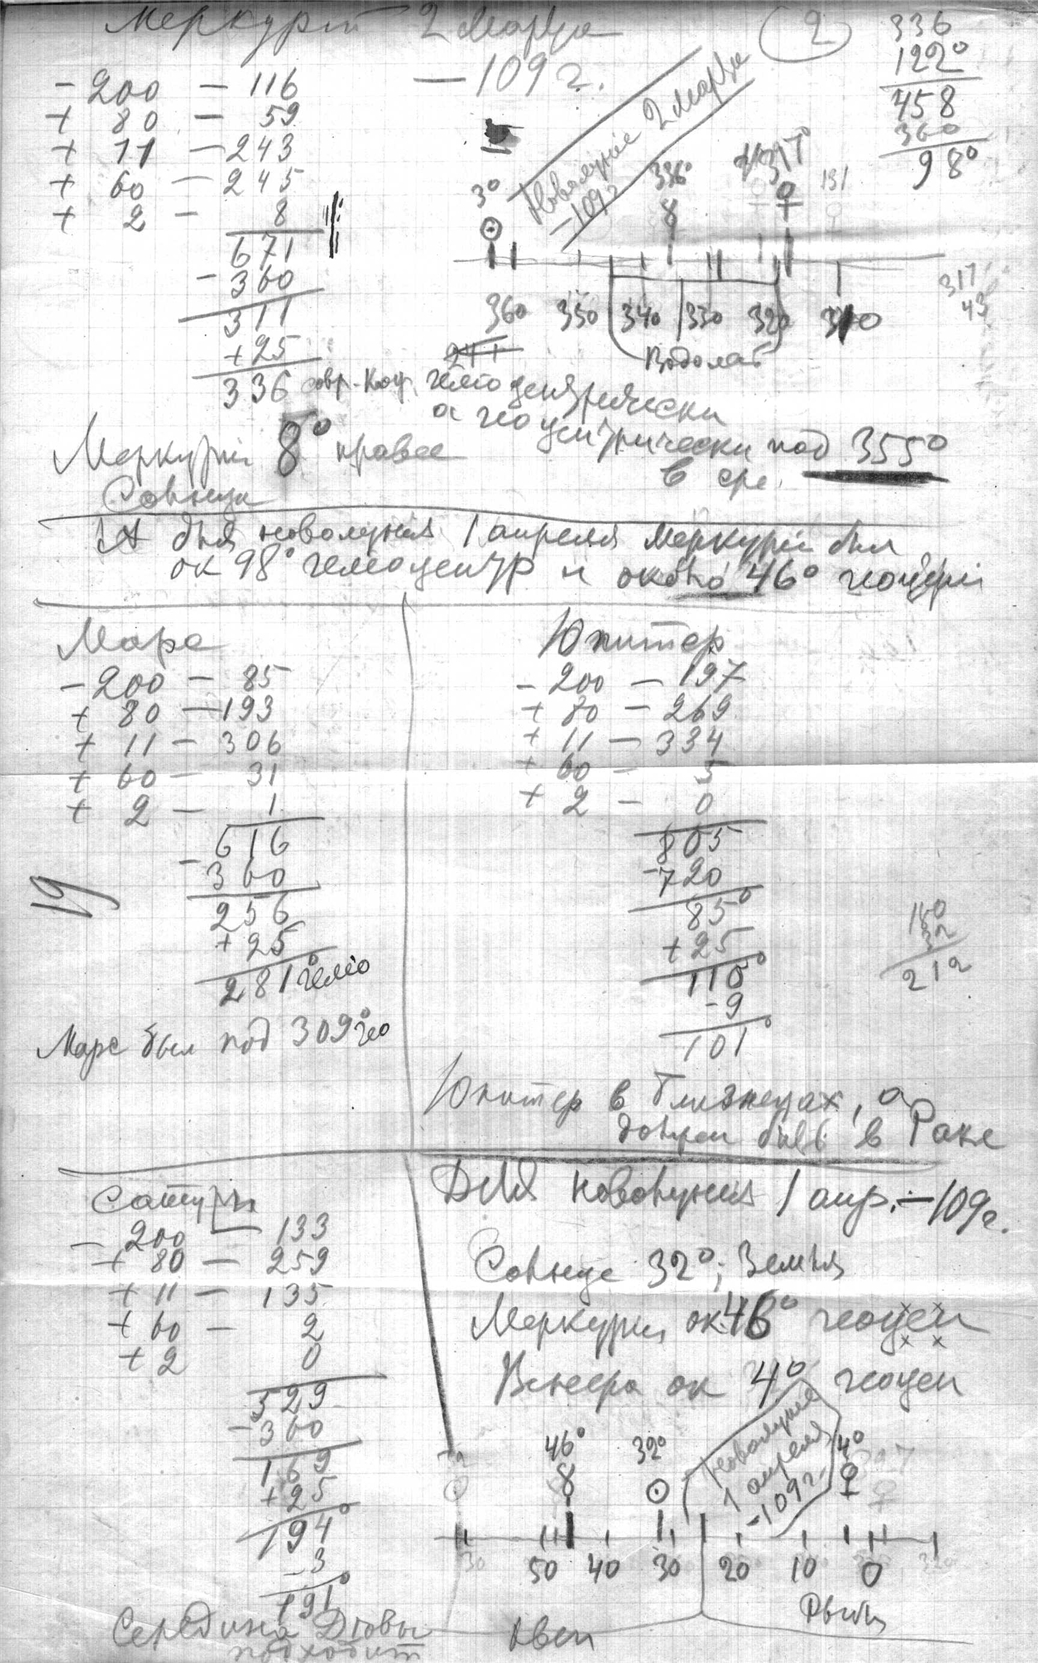 Меркурий 2 Марта
— 109 г.
2
336
122°
458
360
98°
- 200 — 116
+ 80 — 59
+ 11 — 243
+ 60 — 245
+ 2 — 8
671
- 360
311
+25
336 совр. Коор. гелиоцентрически
Новолуние 2 Марта
-109 г
3° 336° 317° 131
☉ ☿ ♀
360 350 340 330 320 310
Водолей
317
43
а геоцентрически под 355°
в сре.
Меркурий 8° правее
Солнца
А для новолуния 1 апреля Меркурий был
ок 98° гелиоцентр и около 46° геоцен
Марс
- 200 — 85
+ 80 — 193
+ 11 — 306
+ 60 — 31
+ 2 — 1
616
- 360
256
+25
281° гелио
Марс был под 309° гео
19
Юпитер
- 200 — 197
+ 80 — 269
+ 11 — 334
+ 60 — 5
+ 2 — 0
805
-720
85°
+25
110°
-9
101°
180
32
212
Юпитер в близнецах, а
должен быть в Раке
Сатурн
- 200 — 133
+ 80 — 259
+ 11 — 135
+ 60 — 2
+ 2 0
529
- 360
169
+25
194°
-3
191°
Середина Девы
подходит
Для новолуния 1 апр. —109 г.
Солнце 32°; Земля
Меркурий ок 46° геоцен
Венера ок 4° геоцен
Новолуние
1 апреля
-109 г.
46° 32° 4°
☿ ☉ ♀
50 40 30 20 10 0
Овен
Рыбы